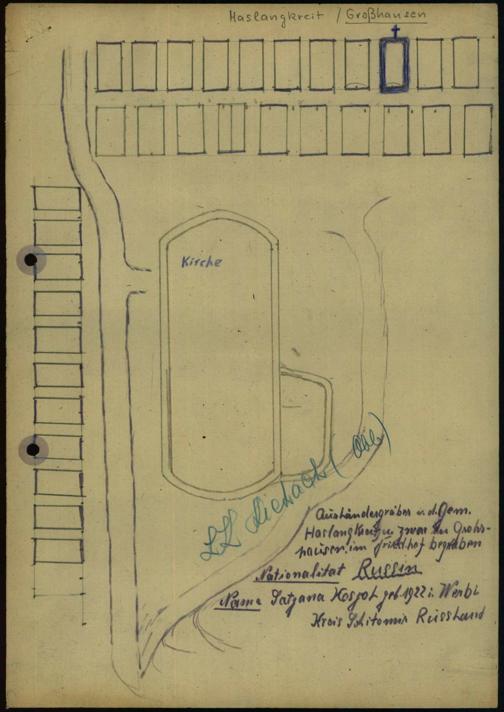 Haslangkreit / Großhausen
Kirche
LK Aichach (Obb)
Ausländergräber u.d. Gem.
Haslangkreit zwar in Groß-
hausen im Friedhof begraben
Nationalität Russin
Name Tatjana geb. 1922 i.
Kreis Schitomir Russland